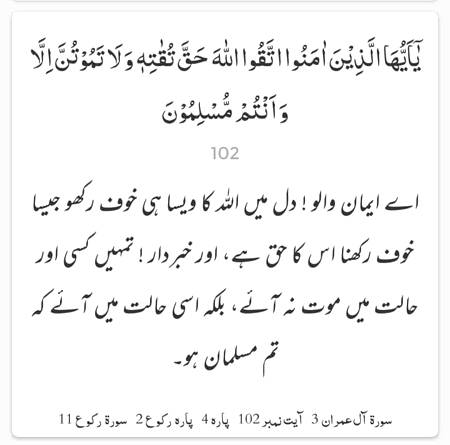 يٰٓاَيُّهَا الَّذِيْنَ اٰمَنُوا اتَّقُوا اللّٰهَ حَقَّ تُقٰتِهٖ وَ لَا تَمُوْتُنَّ اِلَّا
وَ اَنْتُمْ مُّسْلِمُوْنَ
102
اے ایمان والو ! دل میں اللہ کا ویسا ہی خوف رکھو جیسا
خوف رکھنا اس کا حق ہے، اور خبردار ! تمہیں کسی اور
حالت میں موت نہ آئے، بلکہ اسی حالت میں آئے کہ
تم مسلمان ہو۔
سورة آل عمران 3 آیت نمبر 102 پارہ 4 پارہ رکوع 2 سورة رکوع 11